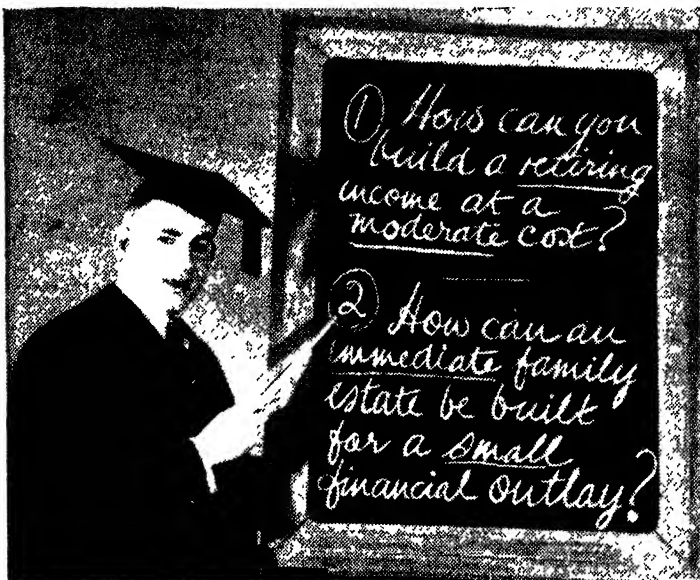 ① How can you
build a retiring
income at a
moderate cost?
② How can an
immediate family
estate be built
for a small
financial outlay?